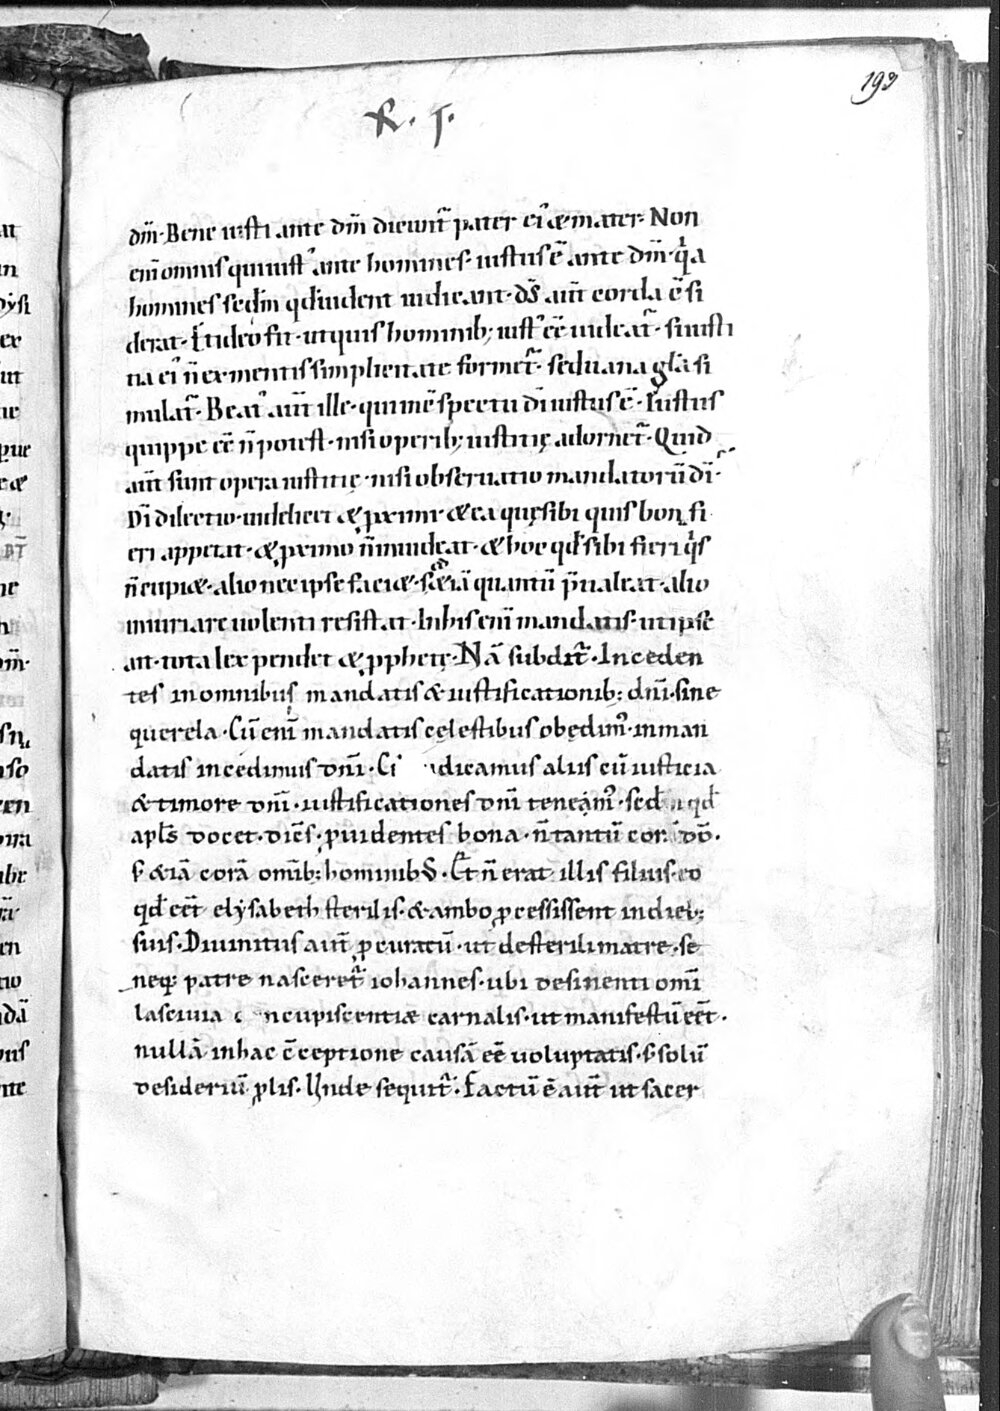 193
R. J.
dm̄·Bene iusti ante dm̄ dicunt᷑ pater ei᷒ & mater· Non
eni᷒ omnis qui iust᷒ ante homines· iustus ē ante dm̄· qͥa
homines sedm̄ qd̄ uident iudicant· ds̄ aut̄ corda c̄si
derat· Et ideo fit· ut quis hominib; iust᷒ eē uideat᷑· si iusti
tia ei᷒ n̄ ex mentis simplicitate formet᷑· sed uana gl̄a si
mulat᷑· Beat᷒ aut̄ ille· qui in c̄spectu dī iustus ē· Iustus
quippe eē n̄ potest· nisi operib; iustitię adornet᷑· Quid
aut̄ sunt opera iustitię· nisi obseruatio mandatorū dī·
Dī dilectio· uidelicet & pximi· & ea quę sibi quis bona fi
eri appetat· & pximo n̄ inuideat· & hoc qd̄ sibi fieri qͥs
n̄ cupiæ· alio nec ipse faciæ· s; & iā quantū p̄ualeat· alio
iniuriare uolenti resistat· In his eni᷒ mandatis· ut ipse
ait· tota lex pendet & pphetę· Nā subdit᷑· Inceden
tes in omnibus mandatis & iustificationib; dn̄i· sine
querela· Cū eni᷒ mandatis cęlestibus obędim᷒· in man
datis incedimus dn̄i· C dicamus aliis cū iusticia
& timore dn̄i· iustificationes dn̄i teneam᷒· sed qd̄
apls̄ docet· dicēs· puidentes bona· n̄ tantū cor dō·
s; & iā corā omīb; hominibꝰ· Et n̄ erat illis filius· eo
qd̄ eēt elysabeth sterilis· & ambo pcessissent in dieb;
suis· Diuinitus aut̄ pcuratū· ut de sterili matre· se
neq; patre nasceret᷑ iohannes· ubi desinenti omī
lasciuia c ncupiscentiæ carnalis· ut manifestū eēt·
nullā in hac c̄ceptione causā eē uoluptatis· s; solū
desideriū plis· Unde sequit᷑· Factū ē aut̄ ut sacer